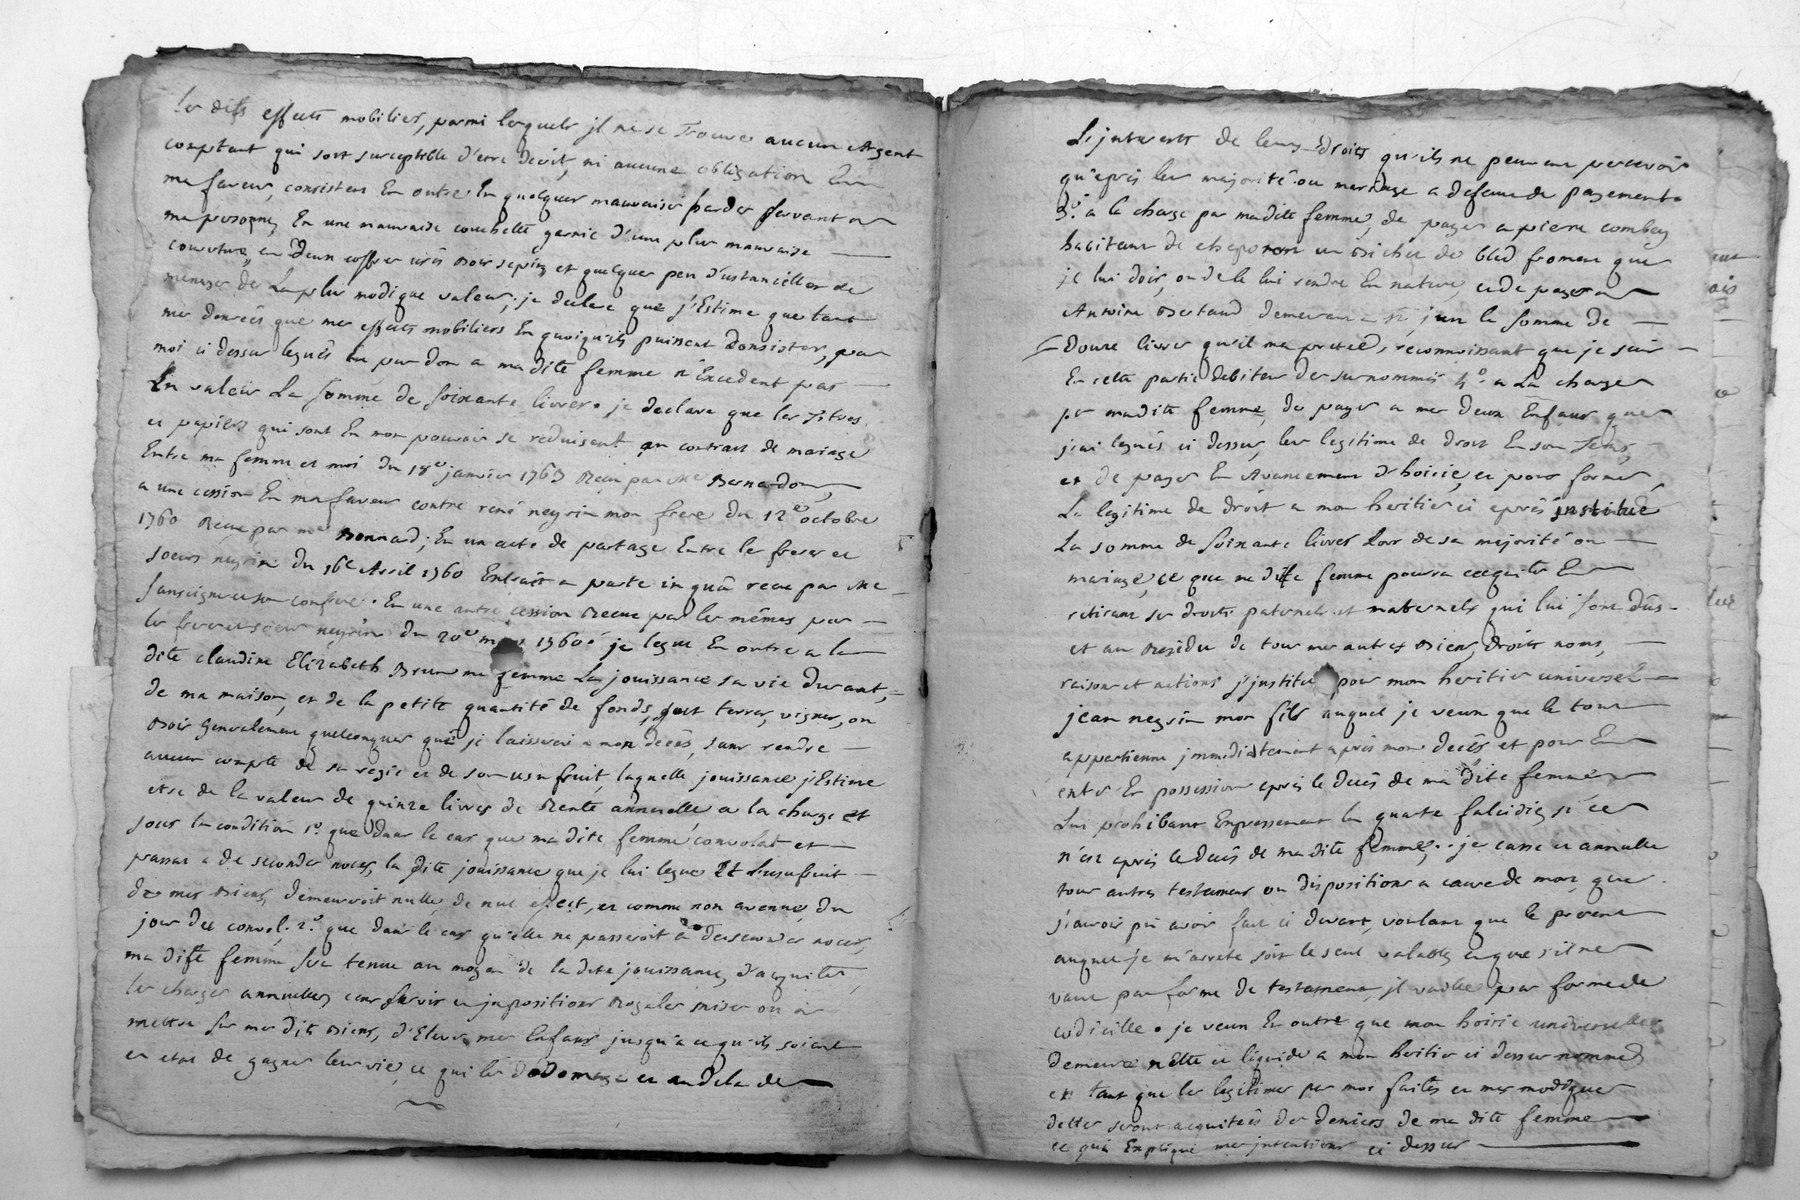 les dits effects mobiliers, parmi lesquels jl ne se trouve aucun Argent
comptant qui soit susceptible d'etre decrit, ni aucune obligation En
ma faveur, consistent En outre En quelques mauvaises hardes servant a
ma personne, En une mauvaise couchette garnie d'une plus mauvaise
couverture, en deux coffres uses Bois sapin, et quelques peu d'ustancilles de
menage de La plus modique valeur; je declare que j'Estime que tant
mes denrées que mes effects mobiliers En quoiqu'ils puissent Consister, par
moi ci dessus legués En pur don a ma dite femme n'Excedent pas
En valeur La somme de soixante livres. je declare que les Titres
et papiers qui sont En mon pouvoir se reduisent au contrat de mariage
Entre ma femme et moi du 18e janvier 1763 Recu par Me Bernardon,
a une cession En ma faveur contre rené neyrin mon frere du 12e octobre
1760 Recue par me Bonnard; En un acte de partage Entre les freres et
soeurs neyrin du 16e Avril 1760 Extrait a parte in qua recue par Me
sansigne et son confrere. En une autre cession Recue par les mêmes par
les freres et soeurs neyrin du 20e mars 1760 je legue En outre a la
dite claudine Elizabeth Brun ma femme La jouissance sa vie durant,
de ma maison, et de la petite quantité de fonds, soit terres, vignes, ou
Bois Generalement quelconques que je laisserai a mon decés, sans rendre
aucun compte de sa regie et de son usufruit, laquelle jouissance j'Estime
etre de la valeur de quinze livres de Rente annuelle a la charge et
sous la condition 1o. que dans le cas que ma dite femme convolat et
passat a de secondes noces, la dite jouissance que je lui legue Et L'usufruit
de mes Biens, demeureroit nulle, de nul effect, et comme non avenue, du
jour du convol. 2o. que dans le cas qu'elle ne passeroit a de secondes noces,
ma dite femme sera tenue au moyen de la dite jouissance, d'acquiter
les charges annuelles, cens servis et jmpositions Royales mises ou a
mettre sur mes dits Biens, d'Elever mes Enfans jusqu'a ce qu'ils soient
en etat de gagner leur vie, ce qui les dedomage et au dela de
Les jnterests de leurs Droits qu'ils ne peuvent percevoir
qu'aprés leur majorité ou mariage a defaut de payement.
3o. a la charge par ma dite femme, de payer a pierre combey
habitant de un Bichet de Bled froment que
je lui dois, ou de le lui rendre En nature, et de payer a
Antoine Bertaud demeurant a la somme de
Douze livres qu'il ma pretée, reconnoissant que je suis
En cette partie debiteur des surnommés 4o. a La charge
par ma dite femme, de payer a mes deux Enfans que
j'ai legués ci dessus, leur legitime de droit En son Tems,
et de payer En Avancement d'hoirie, et pour former
La legitime de droit a mon heritier ci aprés institué
La somme de soixante livres Lors de sa majorité ou
mariage, ce que ma dite femme pourra acquiter En
retirant ses droits paternels et maternels qui lui sont dûs
et au Residu de tous mes autres Biens, droits noms,
raisons et actions j'jnstitue pour mon heritier universel
jean neyrin mon fils auquel je veux que le tout
appartienne jmmediatement aprés mon decés et pour En
entrer En possession aprés le decés de ma dite femme
Lui prohibant Expressement la quarte falcidie, si ce
n'est aprés le decés de ma dite femme.. je casse et annulle
tous autres testamens ou dispositions a cause de mort que
j'aurois pu avoir fait ci devant, voulant que le present
auquel je m'arrete soit le seul valable, et que s'il ne
vaut par forme de testament, jl vaille par forme de
codicille. je veux En outre que mon hoirie universelle
demeure nette et liquide a mon heritier ci dessus nommé
en tant que les legitimes par moi faites et mes modiques
dettes seront acquitées des deniers de ma dite femme
ce qui Explique mes jntentions ci dessus